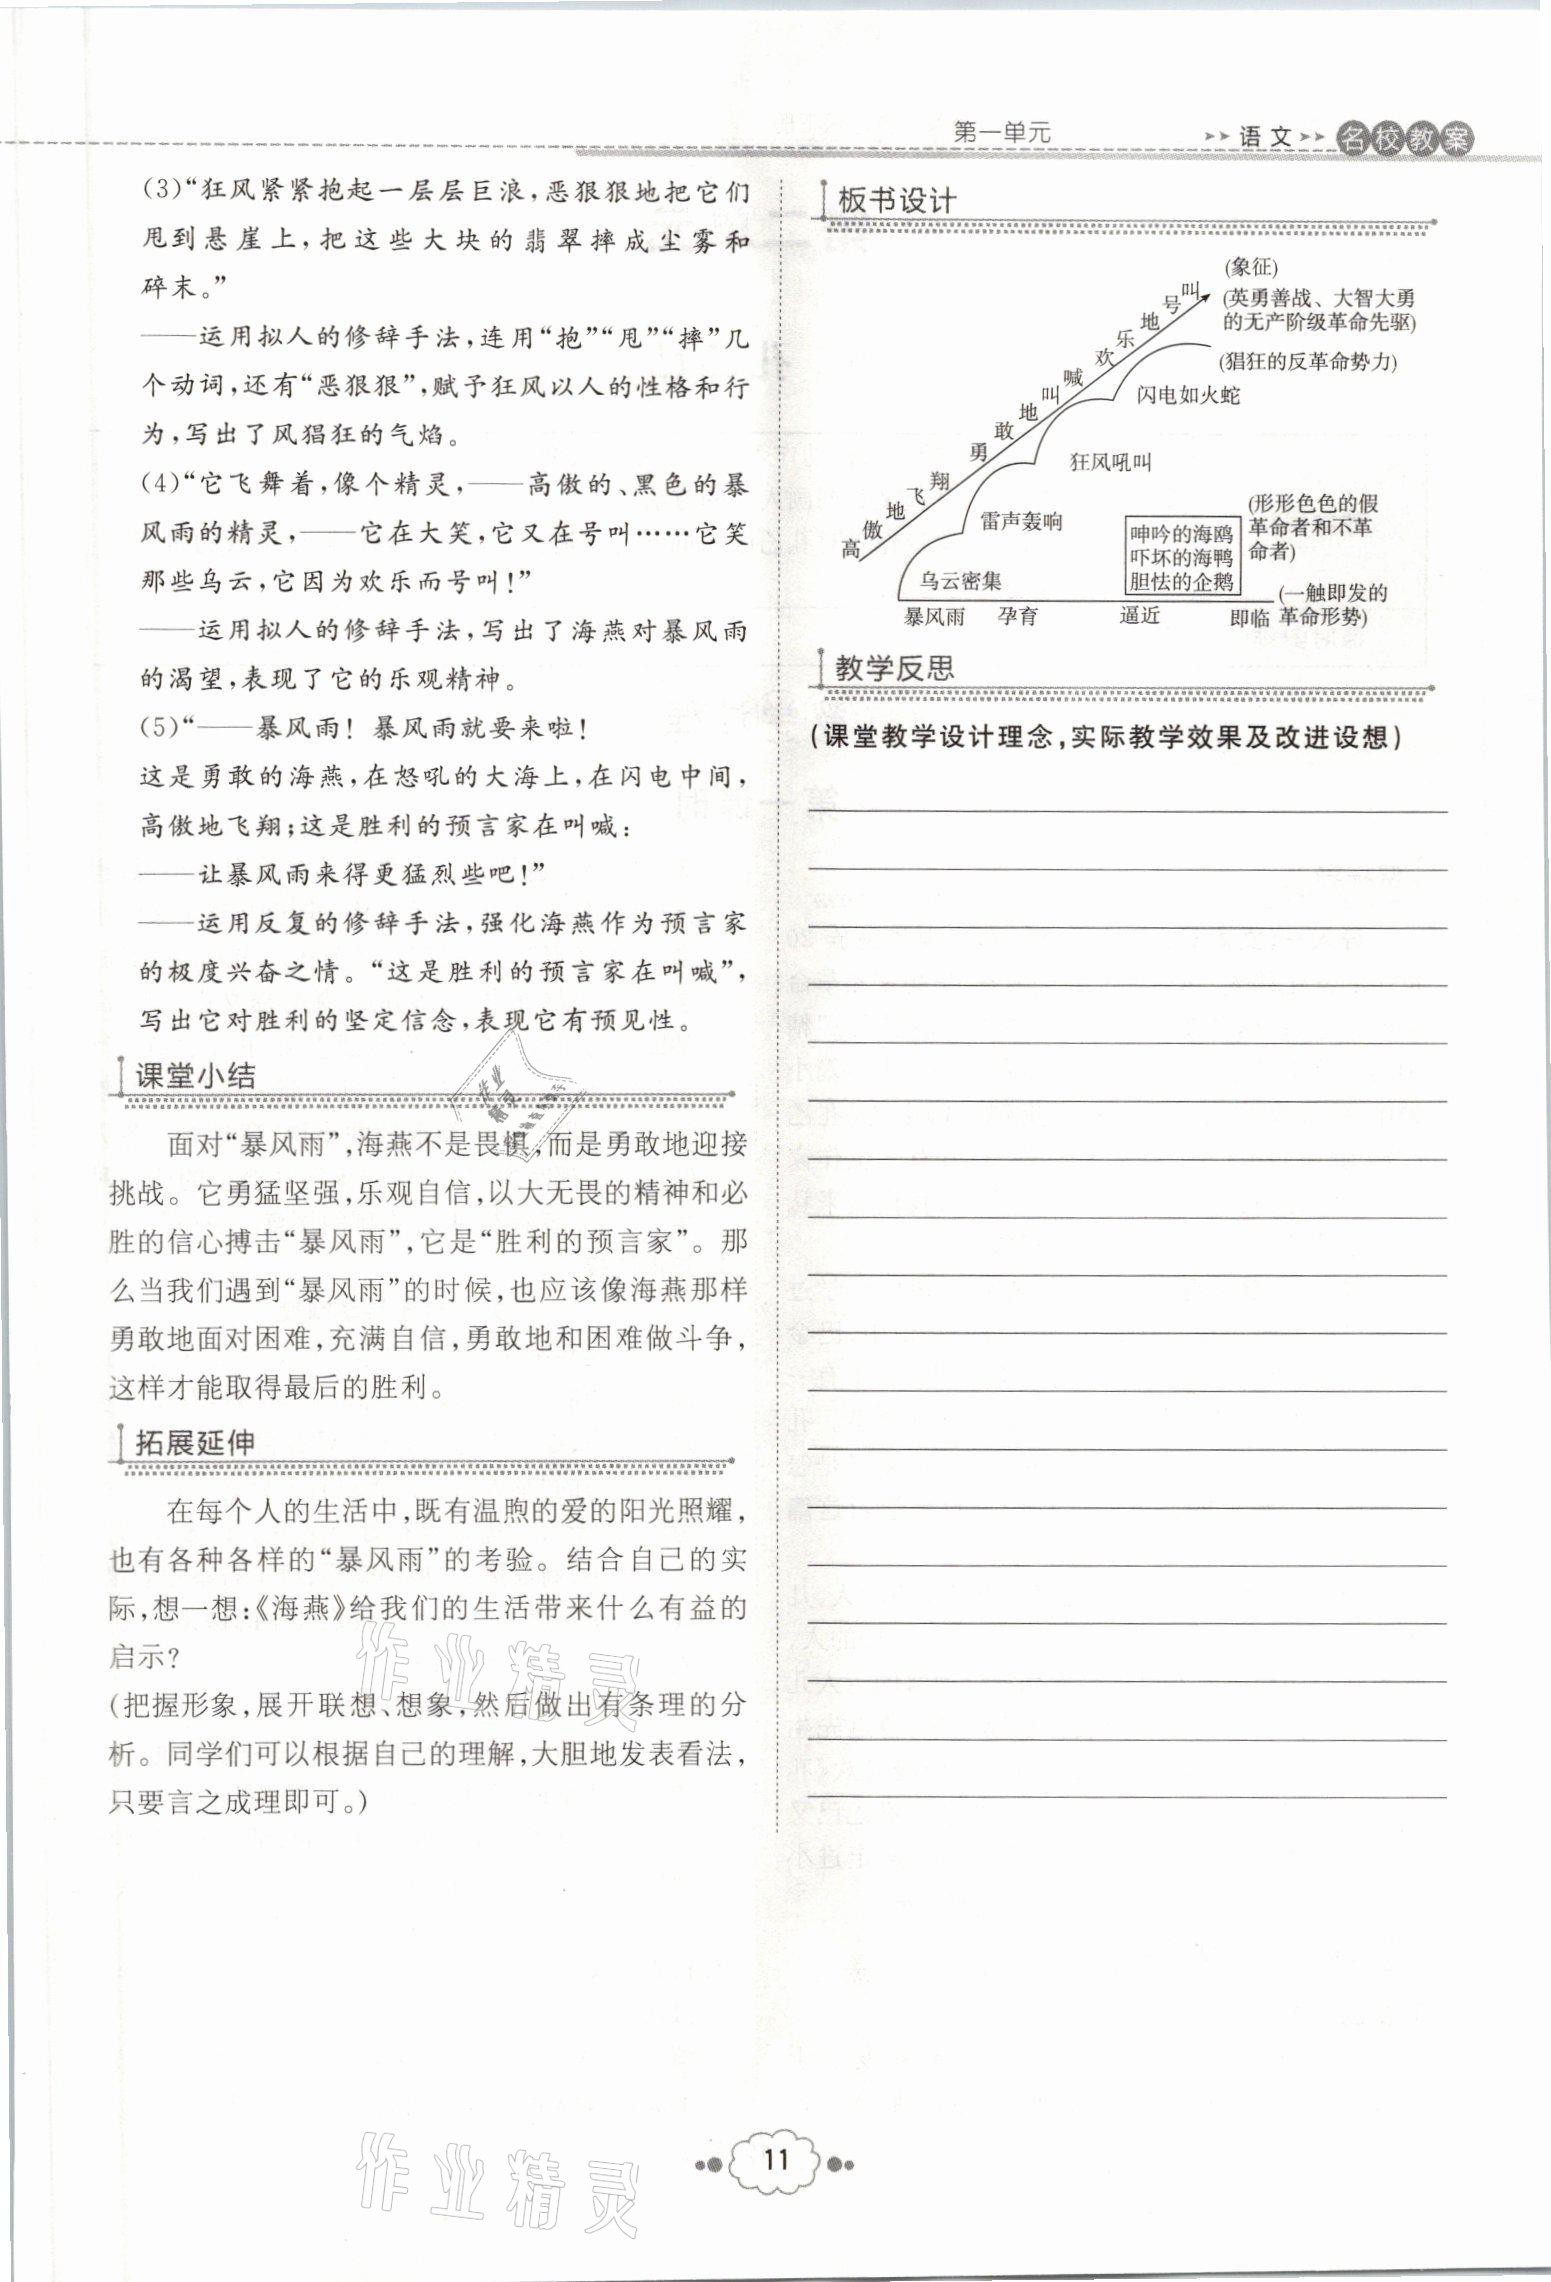 第一单元
语文
名校教案
(3)“狂风紧紧抱起一层层巨浪,恶狠狠地把它们
甩到悬崖上,把这些大块的翡翠摔成尘雾和
碎末。”
——运用拟人的修辞手法,连用“抱”“甩”“摔”几
个动词,还有“恶狠狠”,赋予狂风以人的性格和行
为,写出了风猖狂的气焰。
(4)“它飞舞着,像个精灵,——高傲的、黑色的暴
风雨的精灵,——它在大笑,它又在号叫……它笑
那些乌云,它因为欢乐而号叫!”
——运用拟人的修辞手法,写出了海燕对暴风雨
的渴望,表现了它的乐观精神。
(5)“——暴风雨! 暴风雨就要来啦!
这是勇敢的海燕,在怒吼的大海上,在闪电中间,
高傲地飞翔;这是胜利的预言家在叫喊:
——让暴风雨来得更猛烈些吧!”
——运用反复的修辞手法,强化海燕作为预言家
的极度兴奋之情。“这是胜利的预言家在叫喊”,
写出它对胜利的坚定信念,表现它有预见性。
课堂小结
面对“暴风雨”,海燕不是畏惧,而是勇敢地迎接
挑战。它勇猛坚强,乐观自信,以大无畏的精神和必
胜的信心搏击“暴风雨”,它是“胜利的预言家”。那
么当我们遇到“暴风雨”的时候,也应该像海燕那样
勇敢地面对困难,充满自信,勇敢地和困难做斗争,
这样才能取得最后的胜利。
拓展延伸
在每个人的生活中,既有温煦的爱的阳光照耀,
也有各种各样的“暴风雨”的考验。结合自己的实
际,想一想:《海燕》给我们的生活带来什么有益的
启示?
(把握形象,展开联想、想象,然后做出有条理的分
析。同学们可以根据自己的理解,大胆地发表看法,
只要言之成理即可。)
板书设计
(象征)
(英勇善战、大智大勇
的无产阶级革命先驱)
(猖狂的反革命势力)
高傲地飞翔 勇敢地叫喊 欢乐地号叫
闪电如火蛇
狂风吼叫
雷声轰响
乌云密集
呻吟的海鸥
吓坏的海鸭
胆怯的企鹅
(形形色色的假
革命者和不革
命者)
暴风雨 孕育 逼近 即临
(一触即发的
革命形势)
教学反思
(课堂教学设计理念,实际教学效果及改进设想)
作业精灵
作业精灵
作业精灵
11